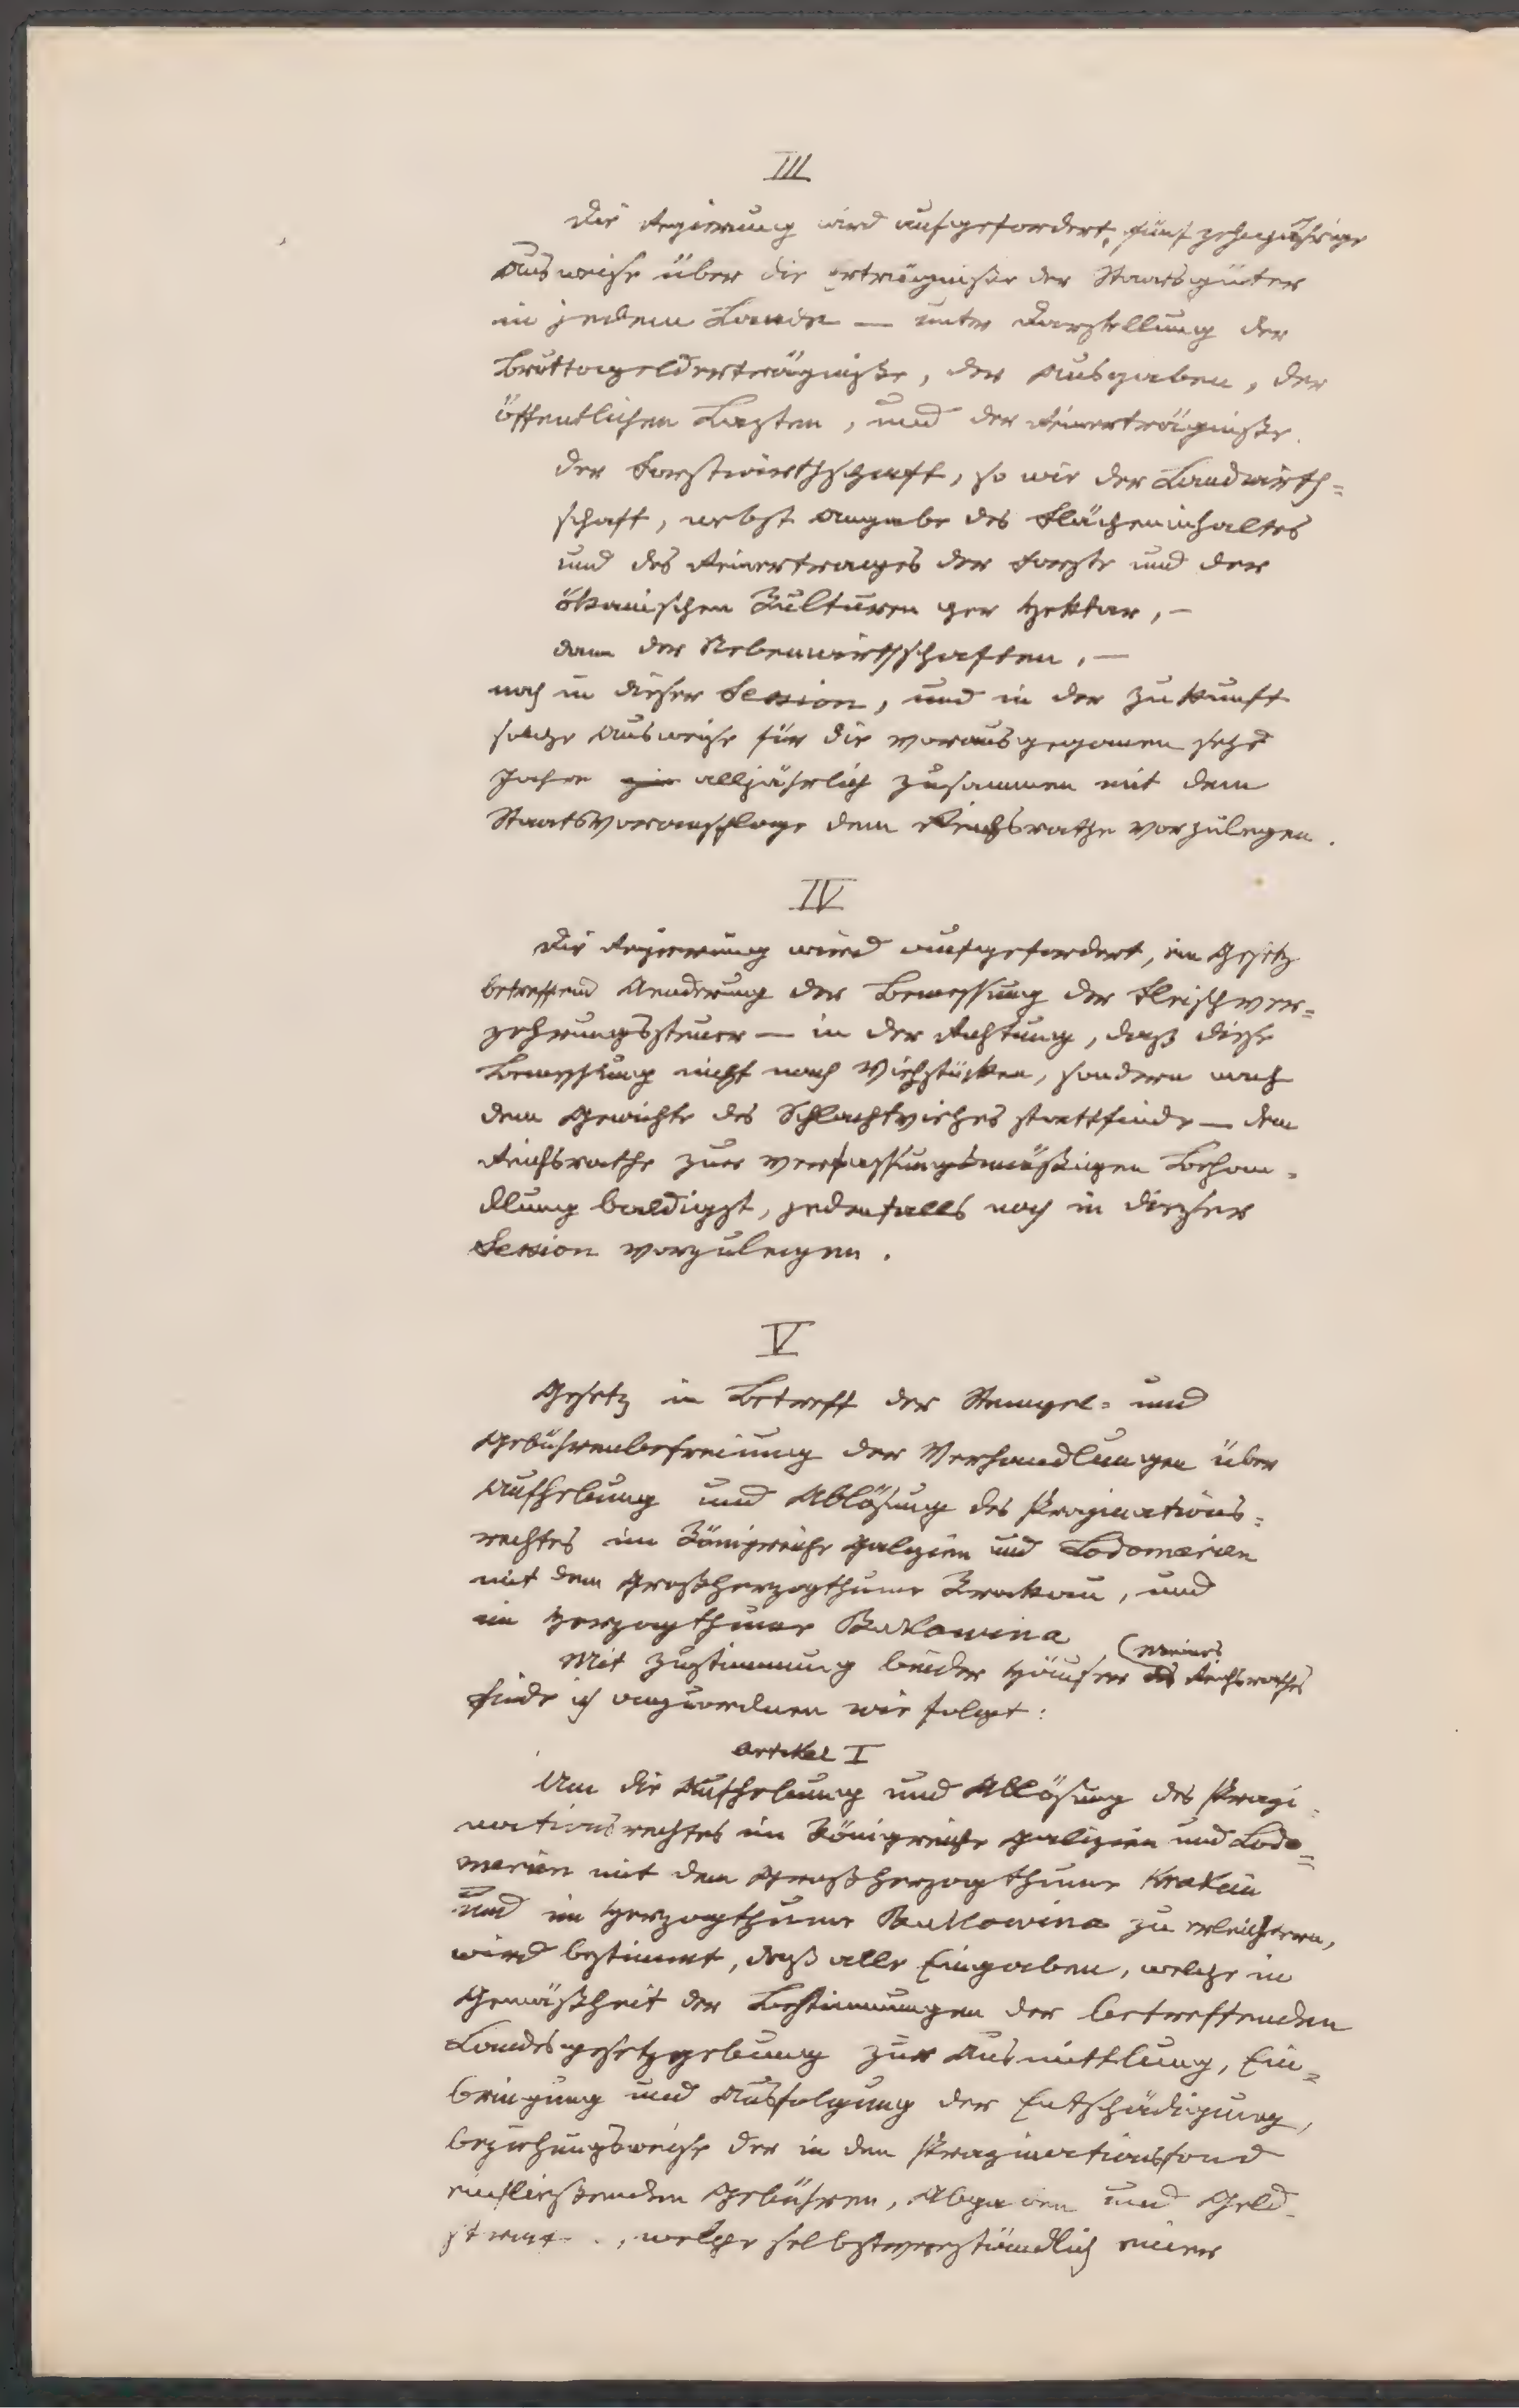 III
Die Regierung wird aufgefordert, fünfzehnjährige
Ausweise über die Erträgnisse der Staatsgüter
in jedem Lande — unter Darstellung der
Bruttogelderträgniße, der Ausgaben, der
öffentlichen Lasten, und der Reinerträgniße
der Forstwirthschaft, so wie der Landwirth=
schaft, nebst Angabe des Flächeninhaltes
und des Reinertrages der Forste und der
ökonischen Kulturen per Hektar, –
dann der Nebenwirthschaften, —
noch in dieser Session, und in der Zukunft
solche Ausweise für die vorausgegangenen sechs
Jahre alljährlich zusammen mit dem
Staatsvoranschlage dem Reichsrathe vorzulegen.
IV
Die Regierung wird aufgefordert, ein Gesetz
betreffend Aenderung der Bemessung der Fleischver=
zehrungssteuer — in der Richtung, daß diese
Bemessung nicht nach Viehstücken, sondern nach
dem Gewichte des Schlachtviehes stattfinde — dem
Reichsrathe zur verfassungsmäßigen Behan=
dlung baldigst, jedenfalls noch in dieser
Session vorzulegen.
V
Gesetz in Betreff der Stempel= und
Gebührenbefreiung der Verhandlungen über
Aufhebung und Ablösung des Propinations=
rechtes im Königreiche Galizien und Lodomerien
mit dem Großherzogthume Krakau, und
im Herzogthume Bukowina
Mit Zustimmung beider Häuser des meines Reichsrathes
finde ich anzuordnen wie folgt:
Artikel I
Um die Aufhebung und Ablösung des Propi=
nationsrechtes im Königreiche Galizien und Lodo=
merien mit dem Großherzogthume Krakau
und im Herzogthume Bukowina zu erleichtern,
wird bestimmt, daß alle Eingaben, welche in
Gemäßheit der Bestimmungen der betreffenden
Landesgesetzgebung zur Ausmittlung, Ein=
bringung und Ausfolgung der Entschädigung,
beziehungsweise der in den Propinationsfond
einfließenden Gebühren, Abgaben und Geld
welche selbstverständlich einer